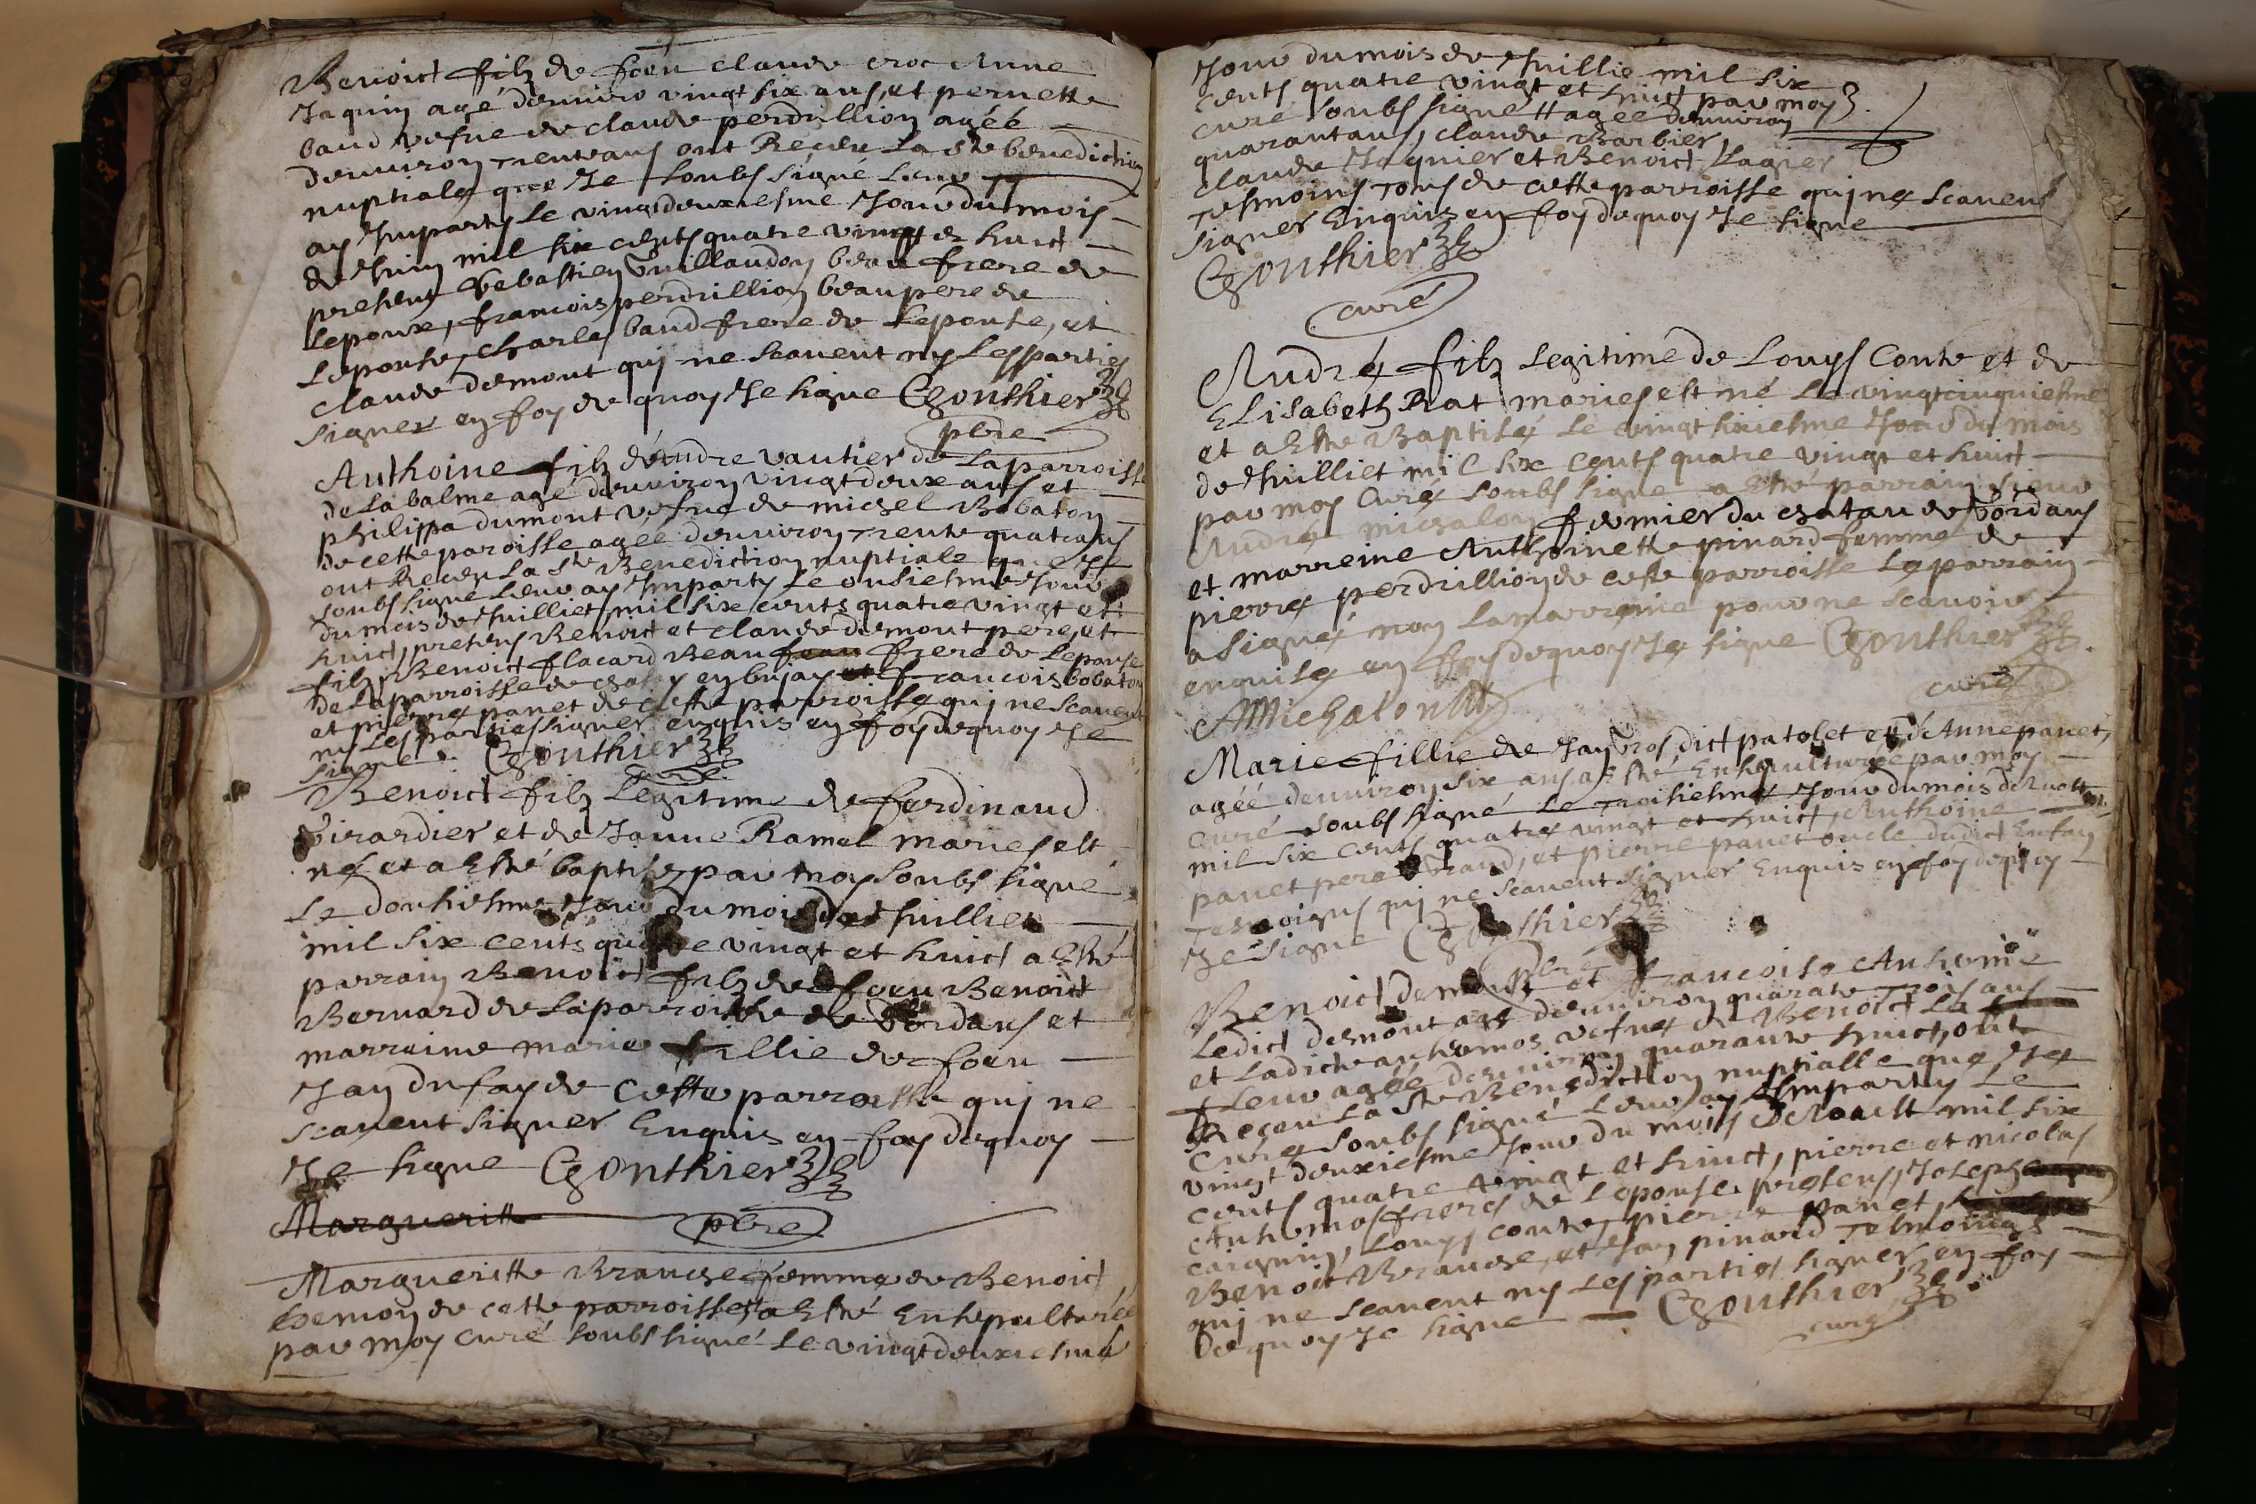 Benoict filz de foeu claude croc Anne
Jaquin agé denviro vingt six ans, et pernette
baud vefue de claude perdrillion agéé
denviron trente ans ont Receu La ste benediction
nuptiale que Je soubs signé Leur
ay Imparty le vingtdeuxiesme Jour du mois
de Juin mil six cents quatre vingt et huict
presens Sebastien Vuillaudon beau frere de
Lepoux, francois perdrillion beau pere de
Lepouse, charles baud frere de Lepouse, et
claude demont qui ne scavent ny Les parties
signer en foy de quoy Je signe Gonthier
pbre
Anthoine filz d'éAndre vautier de Laparroisse
de La balme agé denviron vingtdeux ans et
philippa dumont vefue de michel Bobaton
de cette paroisse agéé denviron trente quatr ans
ont Receu La ste Benediction nuptiale que Je
soubs signe Leur ay Imparty Le onsiesme Jour
du mois de Juilliet mil six cents quatre vingt et
huict, presens Benoict et claude demont pere, et
filz, Benoict flacard Beau frere de Lepouse
de La parroisse de en bujay et francois bobaton
et pierre panet de cette parroisse qui ne scavent
ny Les parties signer enquis en foy de quoy Je
signe. Gonthier
curé
Benoict filz Legitime de ferdinand
Girardier et de Janne Ramel maries est
né et a Esté baptisé par moy soubs signé
Le dousiesme Jour du mois de Juilliet
mil six cents quatre vingt et huict a Esté
parrain Benoict filz de foeu Benoict
Bernard de La parroisse de Vordans et
marraine marie fillie de foeu
Jan du fay de Cette parroisse qui ne
scavent signer Enquis en foy de quoy
Je signe Gonthier
Margueritte
pbre
Margueritte Branche femme de Benoict
hemon de cette parroisse # a Esté Ensepulturéé
par moy curé soubs signé Le vingtdeuxiesme
Jour du mois de Juillie mil six
cents quatre vingt et huict par moy
curé soubs signé # agéé denviron
quarantans, claude Barbier,
claude Jaquier et Benoict Lagier
tesmoins tous de cette parroisse qui ne scavent
signer Enquis en foy de quoy Je signe
Gonthier
curé
Andre filz Legitime de Louys Conte et de
ELisabeth Rat maries est né Le vingtcinquiesme
et a Esté Baptisé Le vingt sixiesme Jour du mois
de Juilliet mil six cents quatre vingt et huict
par moy Curé soubs signe a Esté parrain sieur
André michalon fermier du chatau de Vordans
et marreine Anthoinette pinard femme de
pierre perdrillion de cette parroisse Le parrain
a signé non La marreine pour ne scavoir
enquise en foy de quoy Je signe Gonthier
curé
AMichalon
Marie fillie de Jan dict patolet et d'Anne panet,
agéé denviron six ans a Esté Ensepulturéé par moy
Curé soubs signé Le troisiesme Jour du mois d'Aoust
mil six cents quatre vingt et huict, Anthoine
panet pere grand, et pierre panet oncle dudict Enfan
tesmoigns qui ne scavent signer Enquis en foy de quoy
Je signe Gonthier
pbre
Benoict demont et francoise Anthome
Ledict demont agé denviron quarate trois ans
et Ladicte anthomos vefue de Benoict La
fleur agéé denviron quarante huict, ont
Receu La ste Benediction nuptialle que Je
Curé soubs signé Leur ay Imparty Le
vingt deuxiesme Jour du mois d'Aoust mil six
cents quatre vingt et huict, pierre et nicolas
Anthomos freres de Lepouse presens, Joseph
caignin, Louys conte, pierre panet,
Benoict Branche, et Jan pinard tesmoings
qui ne scavent ny Les parties signer en foy
de quoy Je signe Gonthier
curé